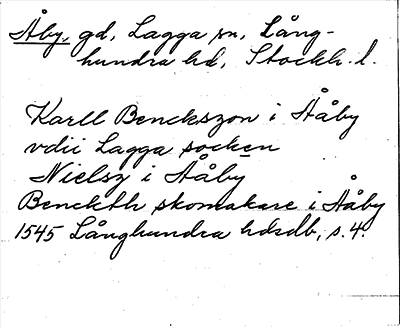 Åby, gd, Lagga sn, Lång-
hundra hd, Stockh. l.
Karll Benckszon iÅåby
vdii Lagga socken
Nielsz i Ååby
Benckth skomakare i Ååby
1545 Långhundra hdsdb, s. 4.